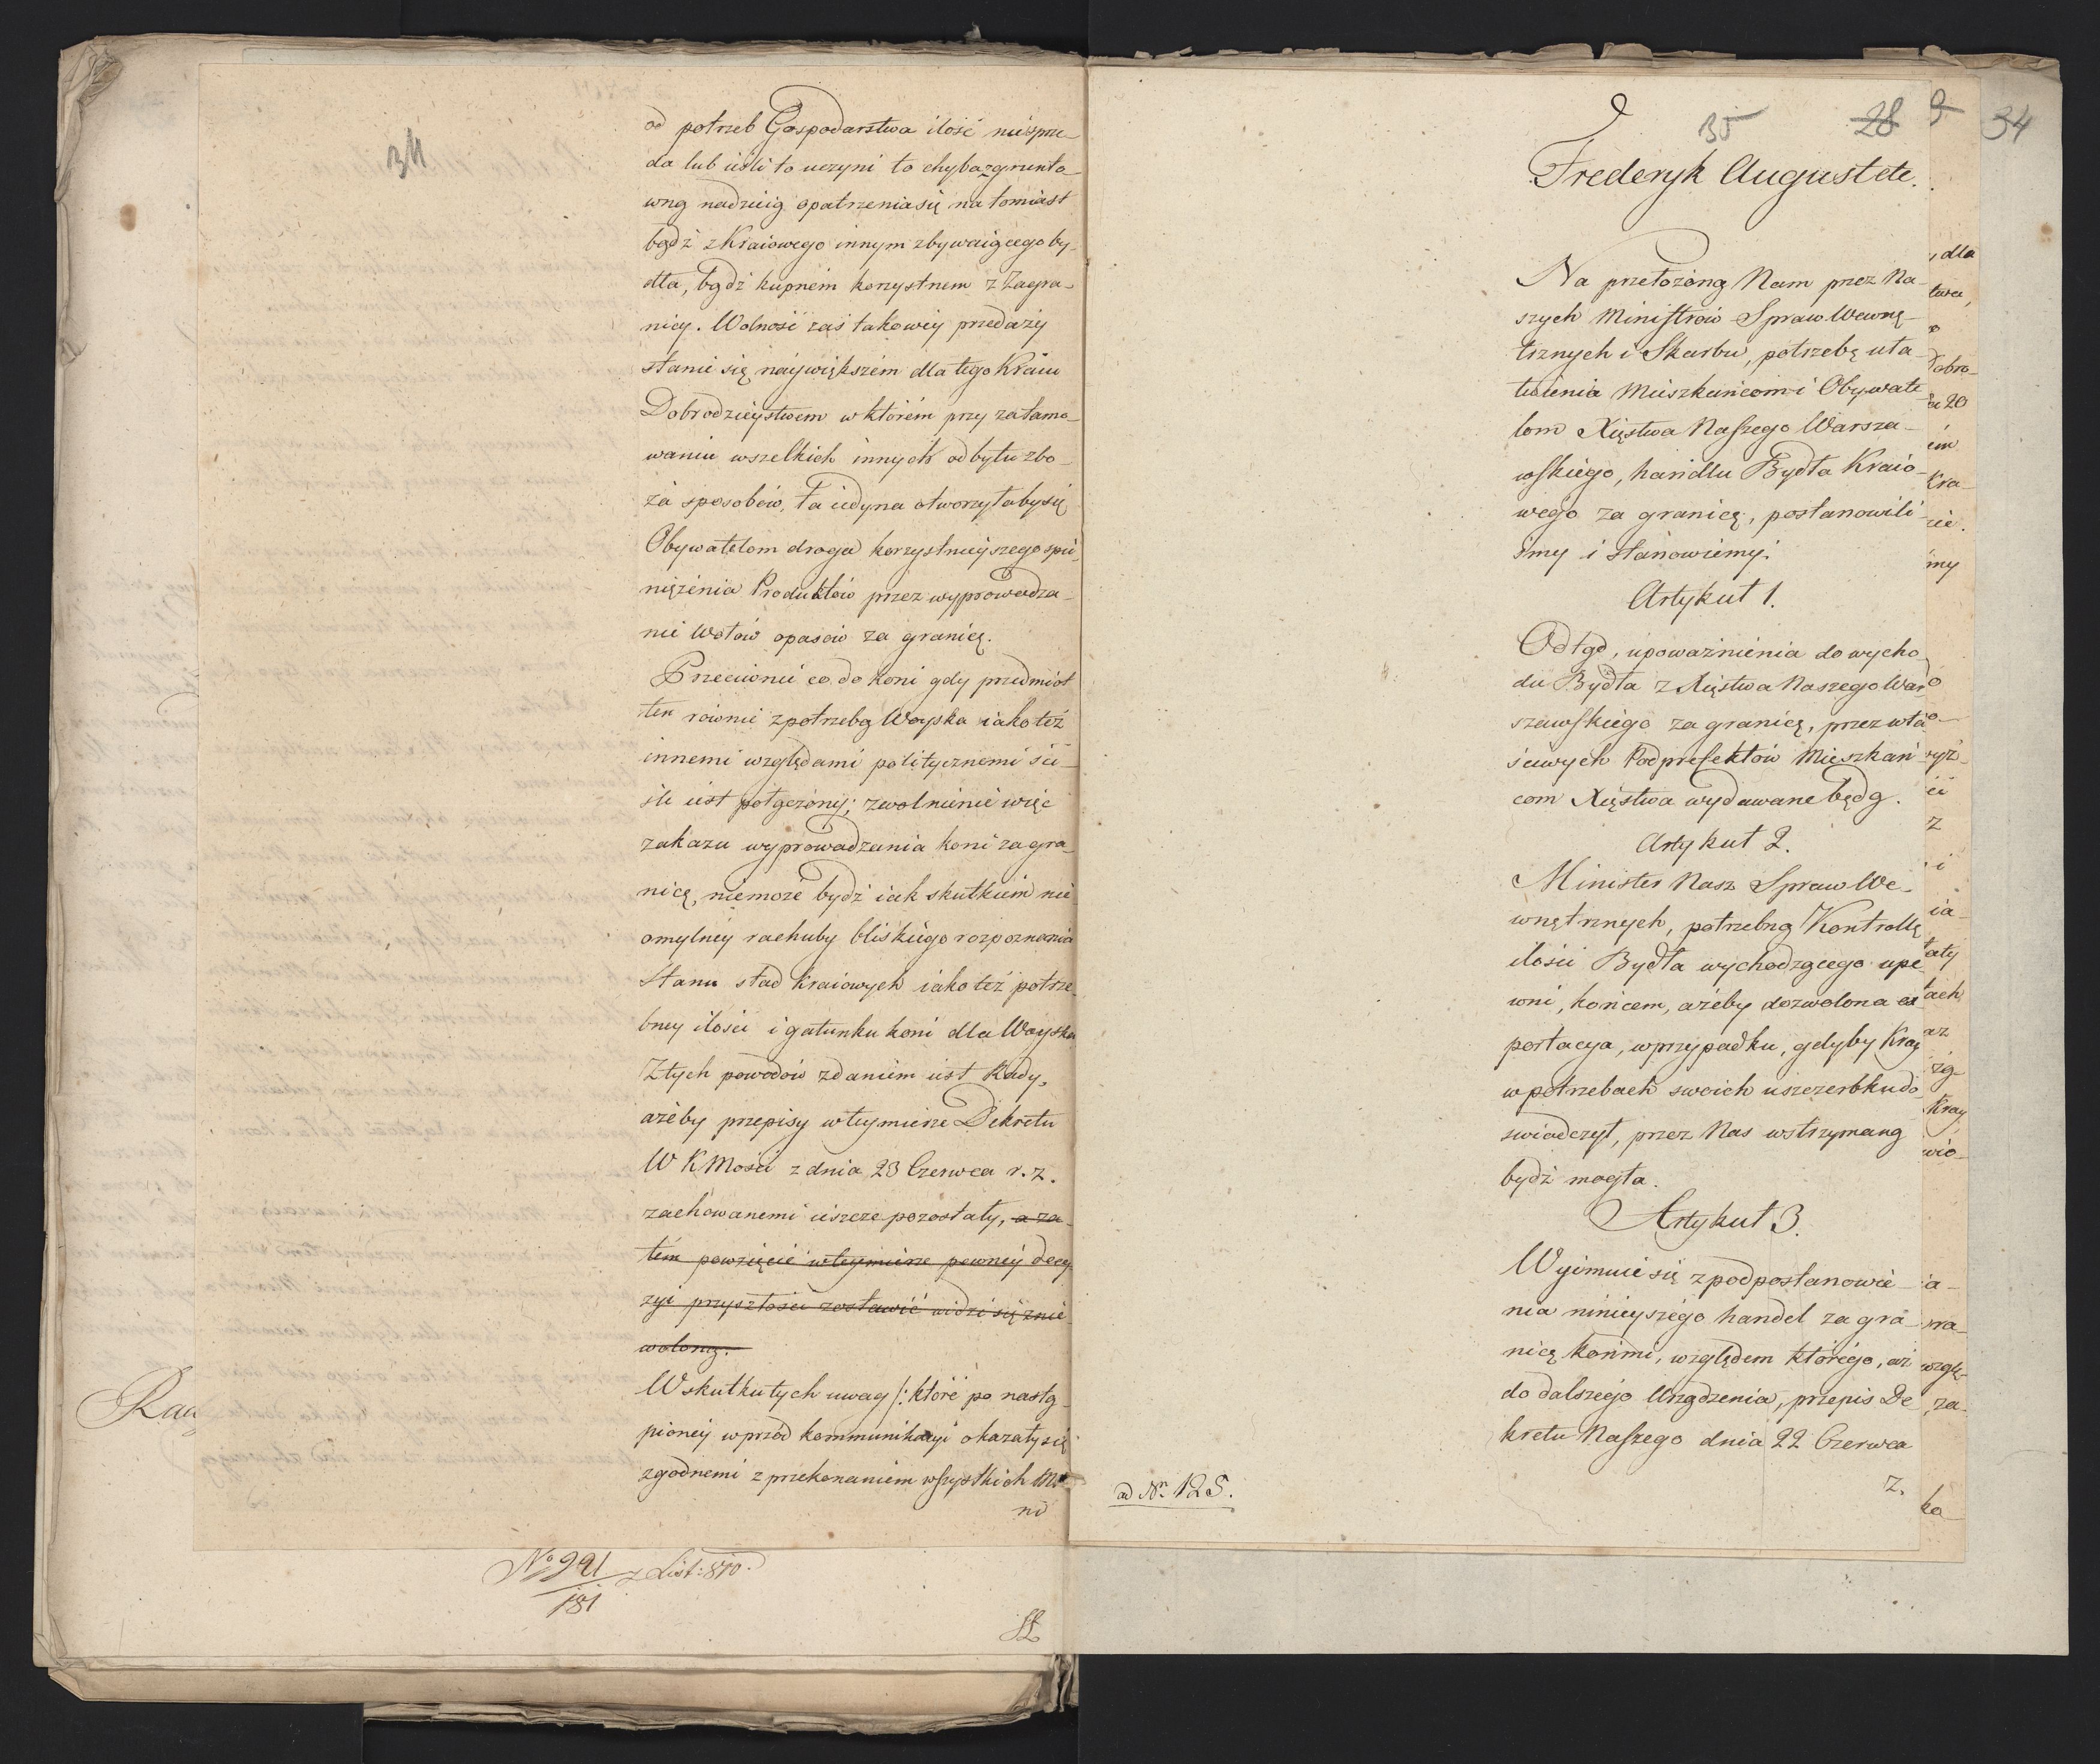 34
od potrzeb Gospodarstwa ilość niesprze-
da lub ieśli to uczyni to chyba z grunto-
wną nadzieią opatrzenia się natomiast
bądź z Kraiowego innym zbywaiącego by-
dła, bądź kupnem korzystnem z Zagra-
nicy. Wolność zaś takowéy przedaży
stanie się náywiększém dla tego Kraiu
Dobrodzieystwem w którém przy zatamo-
waniu wszelkich innych odbytu zbo-
ża sposobów, ta iedyna otworzyłaby się
Obywatelom droga korzystnieyszego spie-
niężenia Produktów przez wyprowadza-
nie Wołów opasow za granicę.
Przeciwnie co do koni gdy przedmiot
ten równie z potrzebą Woyska iako też
innemi względami politycznemi ści-
śle iest połączony; zwolnienie więc
zakazu wyprowadzania koni zagra-
nicę, niemoże bydź iak skutkiem nie
omylnéy rachuby bliskiego rozpoznania
Stanu stad kraiowych iako też potrze-
bney ilości i gatunku koni dla Woyska
Z tych powodow zdaniem iest Rady,
ażeby przepisy w teymierze Dekretu
W K Mości z dnia 23 Czerwca r. z.
zachowanemi ieszcze pozostały, a za-
tém powzięcie w teymierze pewnéy decy
zyi przyszłości zostawić widzi się znie-
woloną.
W skutku tych uwag /: które po nastą-
pionéy wprzód kommunikacyi okazały się
zgodnemi z przekonaniem wszystkich Mi-
ni
No 991 z List: 810.
181
Rad
35 28 9 34
Frederyk August etc.
Na przełożoną Nam przez Na-
szych Ministrów Spraw Wewnę-
trznych i Skarbu, potrzebę uła-
twienia Mieszkańcom i Obywate-
lom Xięstwa Naszego Warsza-
wskiego, handlu Bydła Kraio-
wego za granicę, postanowili-
śmy i stanowiemy:
Artykuł 1.
Odtąd, upoważnienia do wycho-
du Bydła z Xięstwa Naszego War-
szawskiego za granicę, przez wła-
ściwych Podprefektów Mieszkań-
com Xięstwa wydawane będą.
Artykuł 2.
Minister Nasz Spraw We-
wnętrznych, potrzebną Kontrollę
ilości Bydła wychodzącego upe-
wni, końcem, ażeby dozwolona ex
portacya, w przypadku, gdyby Kray
w potrzebach swoich uszczerbku do-
świadczył, przez Nas wstrzymaną
bydź mogła.
Artykuł 3.
Wyimuie się z pod postanowie-
nia ninieyszégo handel za gra-
nicę końmi, względem którégo, aż
do dalszégo Urządzenia, przepis De-
kretu Naszego dnia 22 Czerwca
z.
ad Nr. 125.
dla
Dobro-
20
Kra-
my
ia-
tały
tach
aż
Kray
wio-
wzglę-
za-